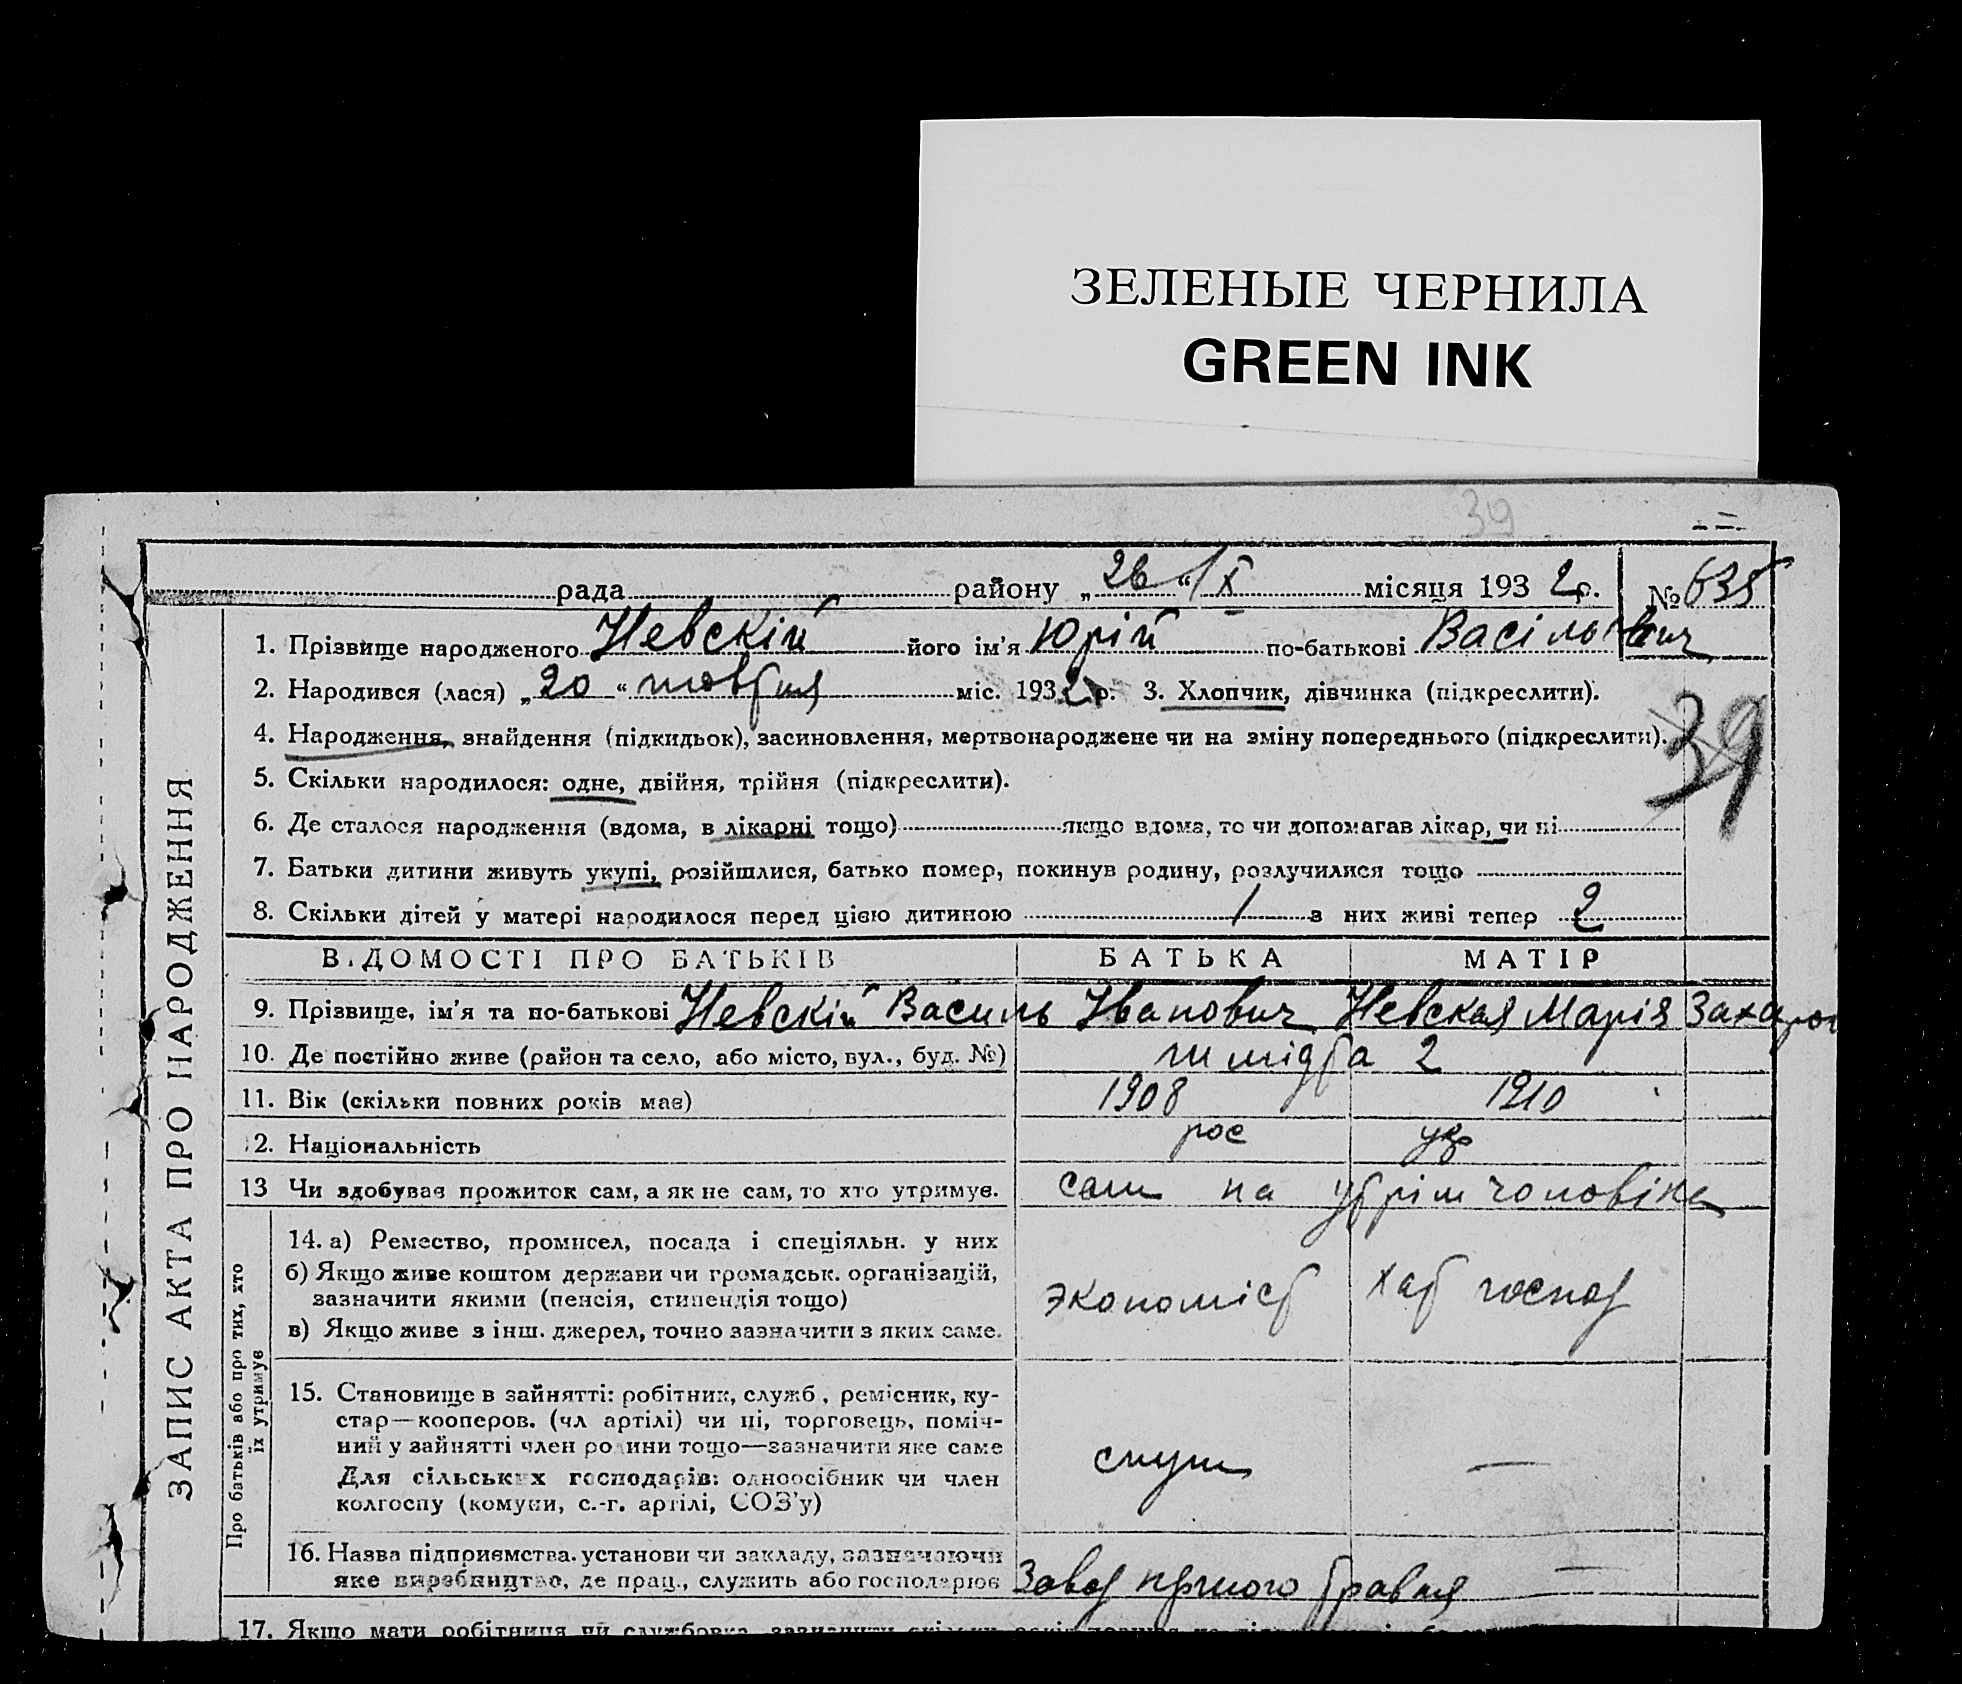 ЗЕЛЕНЫЕ ЧЕРНИЛА
GREEN INK
39
рада района „26“ X місяця 1932р. № 635
1. Прізвище народженого Невскій його ім'я Юрій по-батькові Васільевич
2. Народився (лася) „20“ жовтня міс. 1932 р. 3. Хлопчик, дівчинка (підкреслити).
4. Народження, знайдення (підкидьок), засиновлення, мертвонароджене чи на зміну попереднього (підкреслити).
39
5. Скільки народилося: одне, двійня, трійня (підкреслити).
6. Де сталося народження (вдома, в лікарні тощо) якщо вдома, то чи допомагав лікар, чи ні
7. Батьки дитини живуть укупі, розійшлися, батько помер, покинув родину, розлучилися тощо
8. Скільки дітей у матері народилося перед цією дитиною 1 з них живі тепер 2
ВІДОМОСТІ ПРО БАТЬКІВ БАТЬКА МАТІР
9. Прізвище, ім'я та по-батькові Невскій Василь Іванович Невская Марія
10. Де постійно живе (район та село, або місто, вул., буд. №) 2
11. Вік (скільки повних років має) 1908 1910
12. Національність рос укр
13 Чи здобуває прожиток сам, а як не сам, то хто утримує. сам на утрім чоловіка
14. а) Ремество, промисел, посада і спеціяльн. у них
б) Якщо живе коштом держави чи громадськ. організацій,
зазначити якими (пенсія, стипендія тощо)
в) Якщо живе з інш. джерел, точно зазначити з яких саме.
экономіст хат господ
15. Становище в зайнятті: робітник, служб, ремісник, ку-
стар—кооперов. (чл артілі) чи ні, торговець, поміч-
ний у зайнятті член родини тощо—зазначити яке саме
Для сільських господарів: одноосібник чи член
колгоспу (комуни, с.-г. артілі, СОЗ'у)
служ —
16. Назва підприємства. установи чи закладу, зазначаючи
яке виробництво, де прац., служить або господарює Завод —
17. Якщо мати робітниця чи службовка
ЗАПИС АКТА ПРО НАРОДЖЕННЯ
Про батьків або про тих, хто
їх утримує